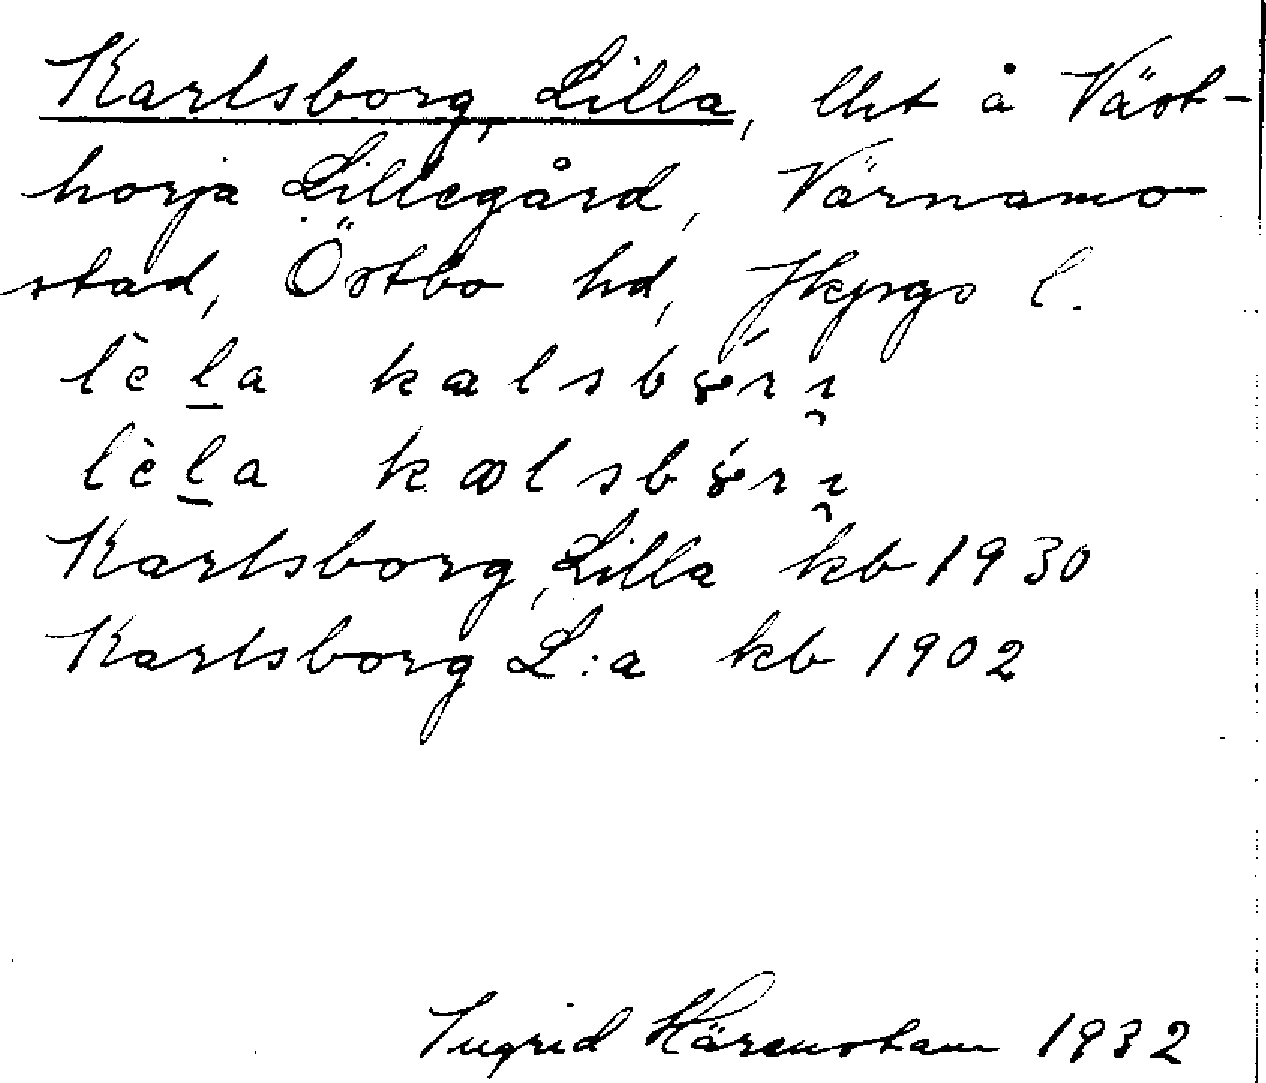 Karlsborg, Lilla, lht å Väst-
horja Lillegård, Värnamo
stad, Östbo hd, Jkpgs l.
lèḻa
lèḻa
Karlsborg, Lilla kb 1930
Karlsborg L:a kb 1902
Ingrid Härenstam 1932